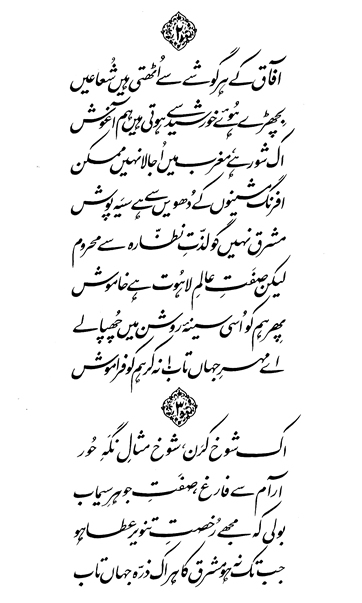 ۲
آفاق کے ہر گوشے سے اُٹھتی ہیں شُعاعیں
بچھڑے ہُوئے خورشید سے ہوتی ہیں ہم آغوش
اک شور ہے، مغرب میں اُجالا نہیں ممکن
افرنگ مشینوں کے دھویں سے ہے سیَہ پوش
مشرق نہیں گو لذّتِ نظّارہ سے محروم
لیکن صفَتِ عالمِ لاہُوت ہے خاموش
پھر ہم کو اُسی سینۂ روشن میں چھُپا لے
اے مہرِ جہاں تاب! نہ کر ہم کو فراموش
۳
اک شوخ کرن، شوخ مثالِ نگَہِ حُور
آرام سے فارغ، صفَتِ جوہرِ سیماب
بولی کہ مجھے رُخصتِ تنویر عطا ہو
جب تک نہ ہو مشرق کا ہر اک ذرّہ جہاں تاب